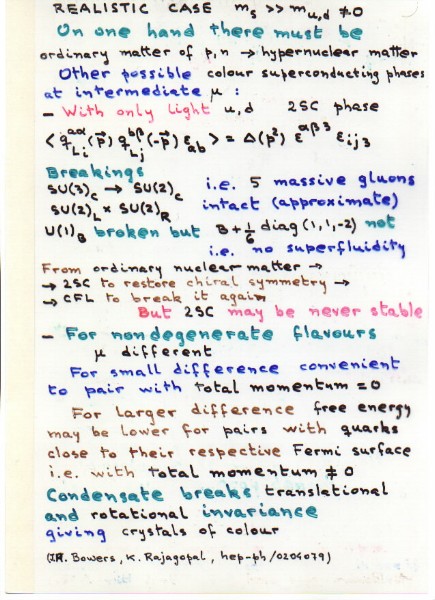 REALISTIC CASE m_s >> m_u,d ≠ 0
On one hand there must be
ordinary matter of p,n → hypernuclear matter
Other possible colour superconducting phases
at intermediate μ :
– With only light u,d 2SC phase
< q_Li^aα (p⃗) q_Lj^bβ (-p⃗) ε_ab > = Δ(p²) ε^αβ3 ε_ij3
Breakings
SU(3)_c → SU(2)_c i.e. 5 massive gluons
SU(2)_L × SU(2)_R intact (approximate)
U(1)_B broken but B + 1/6 diag (1,1,-2) not
i.e. no superfluidity
From ordinary nuclear matter →
→ 2SC to restore chiral symmetry →
→ CFL to break it again
But 2SC may be never stable
– For nondegenerate flavours
μ different
For small difference convenient
to pair with total momentum = 0
For larger difference free energy
may be lower for pairs with quarks
close to their respective Fermi surface
i.e. with total momentum ≠ 0
Condensate breaks translational
and rotational invariance
giving crystals of colour
Bowers, K. Rajagopal, hep-ph/0204079)